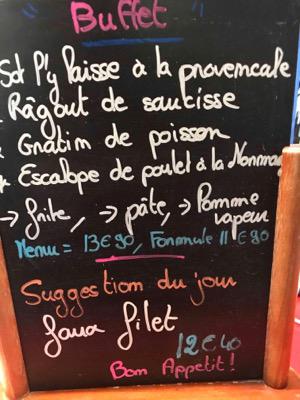 Buffet
Sot P'y laisse à la provemcale
Râgout de saucisse
* Gratim de poisson
* Escalope de poulet à la Normman
→ frite, → pâte, → Pomme
vapeur
Menu = 13€90, Formule 11€90
Suggestion du jour
filet
12€40
Bom Appetit!